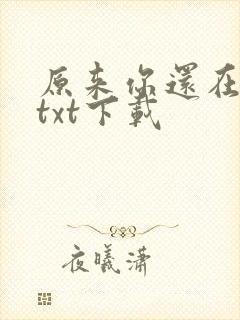 原來你還在
txt下載
夜曦瀟